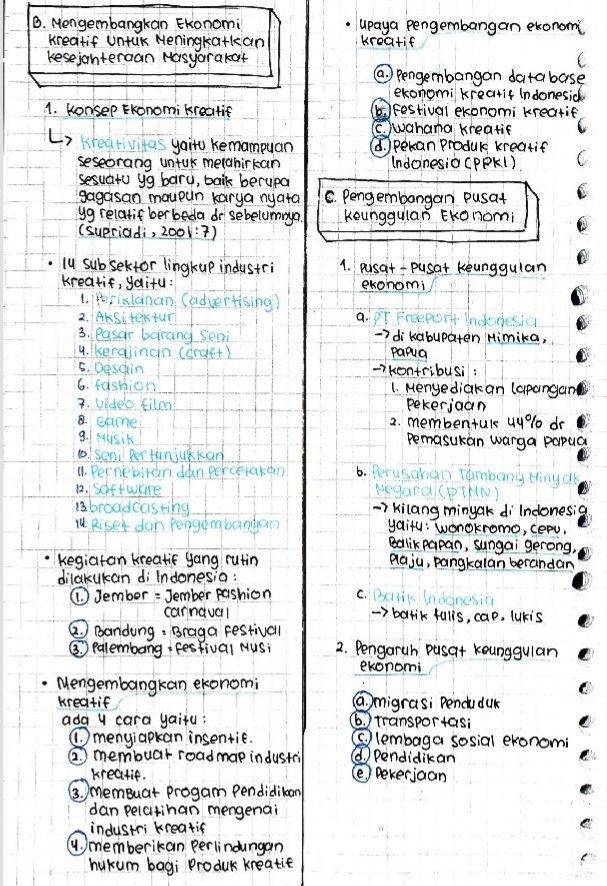 B. Mengembangkan Ekonomi
Kreatif untuk Meningkatkan
kesejahteraan Masyarakat
1. Konsep Ekonomi Kreatif
↳ Kreativitas yaitu kemampuan
seseorang untuk melahirkan
sesuatu yg baru, baik berupa
gagasan maupun karya nyata
yg relatif berbeda dr sebelumnya.
(Supriadi, 2001:7)
• 14 subsektor lingkup industri
kreatif, yaitu:
1. Periklanan (advertising)
2. Aksitektur
3. Pasar barang Seni
4. kerajinan (craft)
5. Desain
6. fashion
7. Video film
8. Game
9. Musik
10. Seni Pertunjukkan
11. Pernebitan dan percetakan
12. Software
13 broadcasting
14. Riset dan Pengembangan
• kegiatan kreatif yang rutin
dilakukan di Indonesia:
1. Jember = Jember Fashion
carnaval
2. Bandung = Braga Festival
3. Palembang = festival Musi
• Mengembangkan ekonomi
kreatif
ada 4 cara yaitu:
1. menyiapkan insentif.
2. membuat roadmap industri
kreatif.
3. Membuat Progam Pendidikan
dan pelatihan mengenai
industri kreatif
4. memberikan Perlindungan
hukum bagi Produk kreatif
• upaya pengembangan ekonomi
kreatif
a. Pengembangan database
ekonomi kreatif Indonesia
b. Festival ekonomi kreatif
c. wahana kreatif
d. pekan produk kreatif
Indonesia (PPKI)
C. Pengembangan pusat
keunggulan Ekonomi
1. Pusat-Pusat keunggulan
ekonomi
a. PT Freeport Indonesia
→ di kabupaten Mimika,
Papua
→ kontribusi:
1. Menyediakan lapangan
pekerjaan
2. membentuk 44% dr
pemasukan warga papua
b. Perusahan Tambang Minyak
Negara (PTMN)
→ kilang minyak di Indonesia
yaitu: wonokromo, cepu,
Balikpapan, sungai gerong,
Plaju, pangkalan berandan
c. Batik Indonesia
→ batik tulis, cap, lukis
2. Pengaruh pusat keunggulan
ekonomi
a. migrasi Penduduk
b. transportasi
c. lembaga sosial ekonomi
d. Pendidikan
e. Pekerjaan